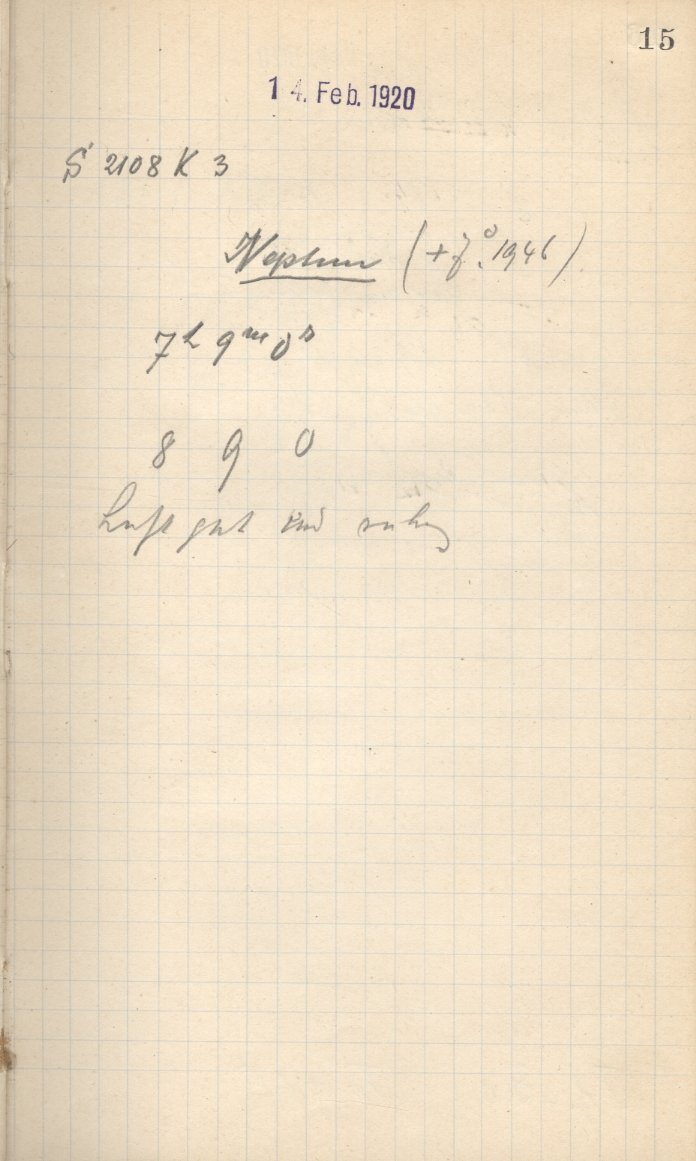 15
14. Feb. 1920
S 2108 K 3
Neptun (+7°.1946)
7h 9m 0s
8 9 0
Luft gut und ruhig